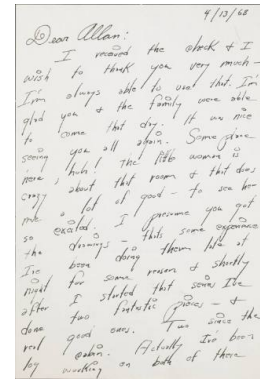 4/13/68
Dear Allan:
I received the check & I
wish to thank you very much -
I'm always able to use that. I'm
glad you & the family were able
to come that day. It was nice
seeing you all again. Some place
here, huh! The little woman is
crazy about that room & that does
me a lot of good - to see her
so excited. I presume you got
the drawings - that's some experience
I've been doing them late at
night for some reason & shortly
after I started that series I've
done two fantastic pieces - &
real good ones. Two since the
Actually I've been
working on both of these